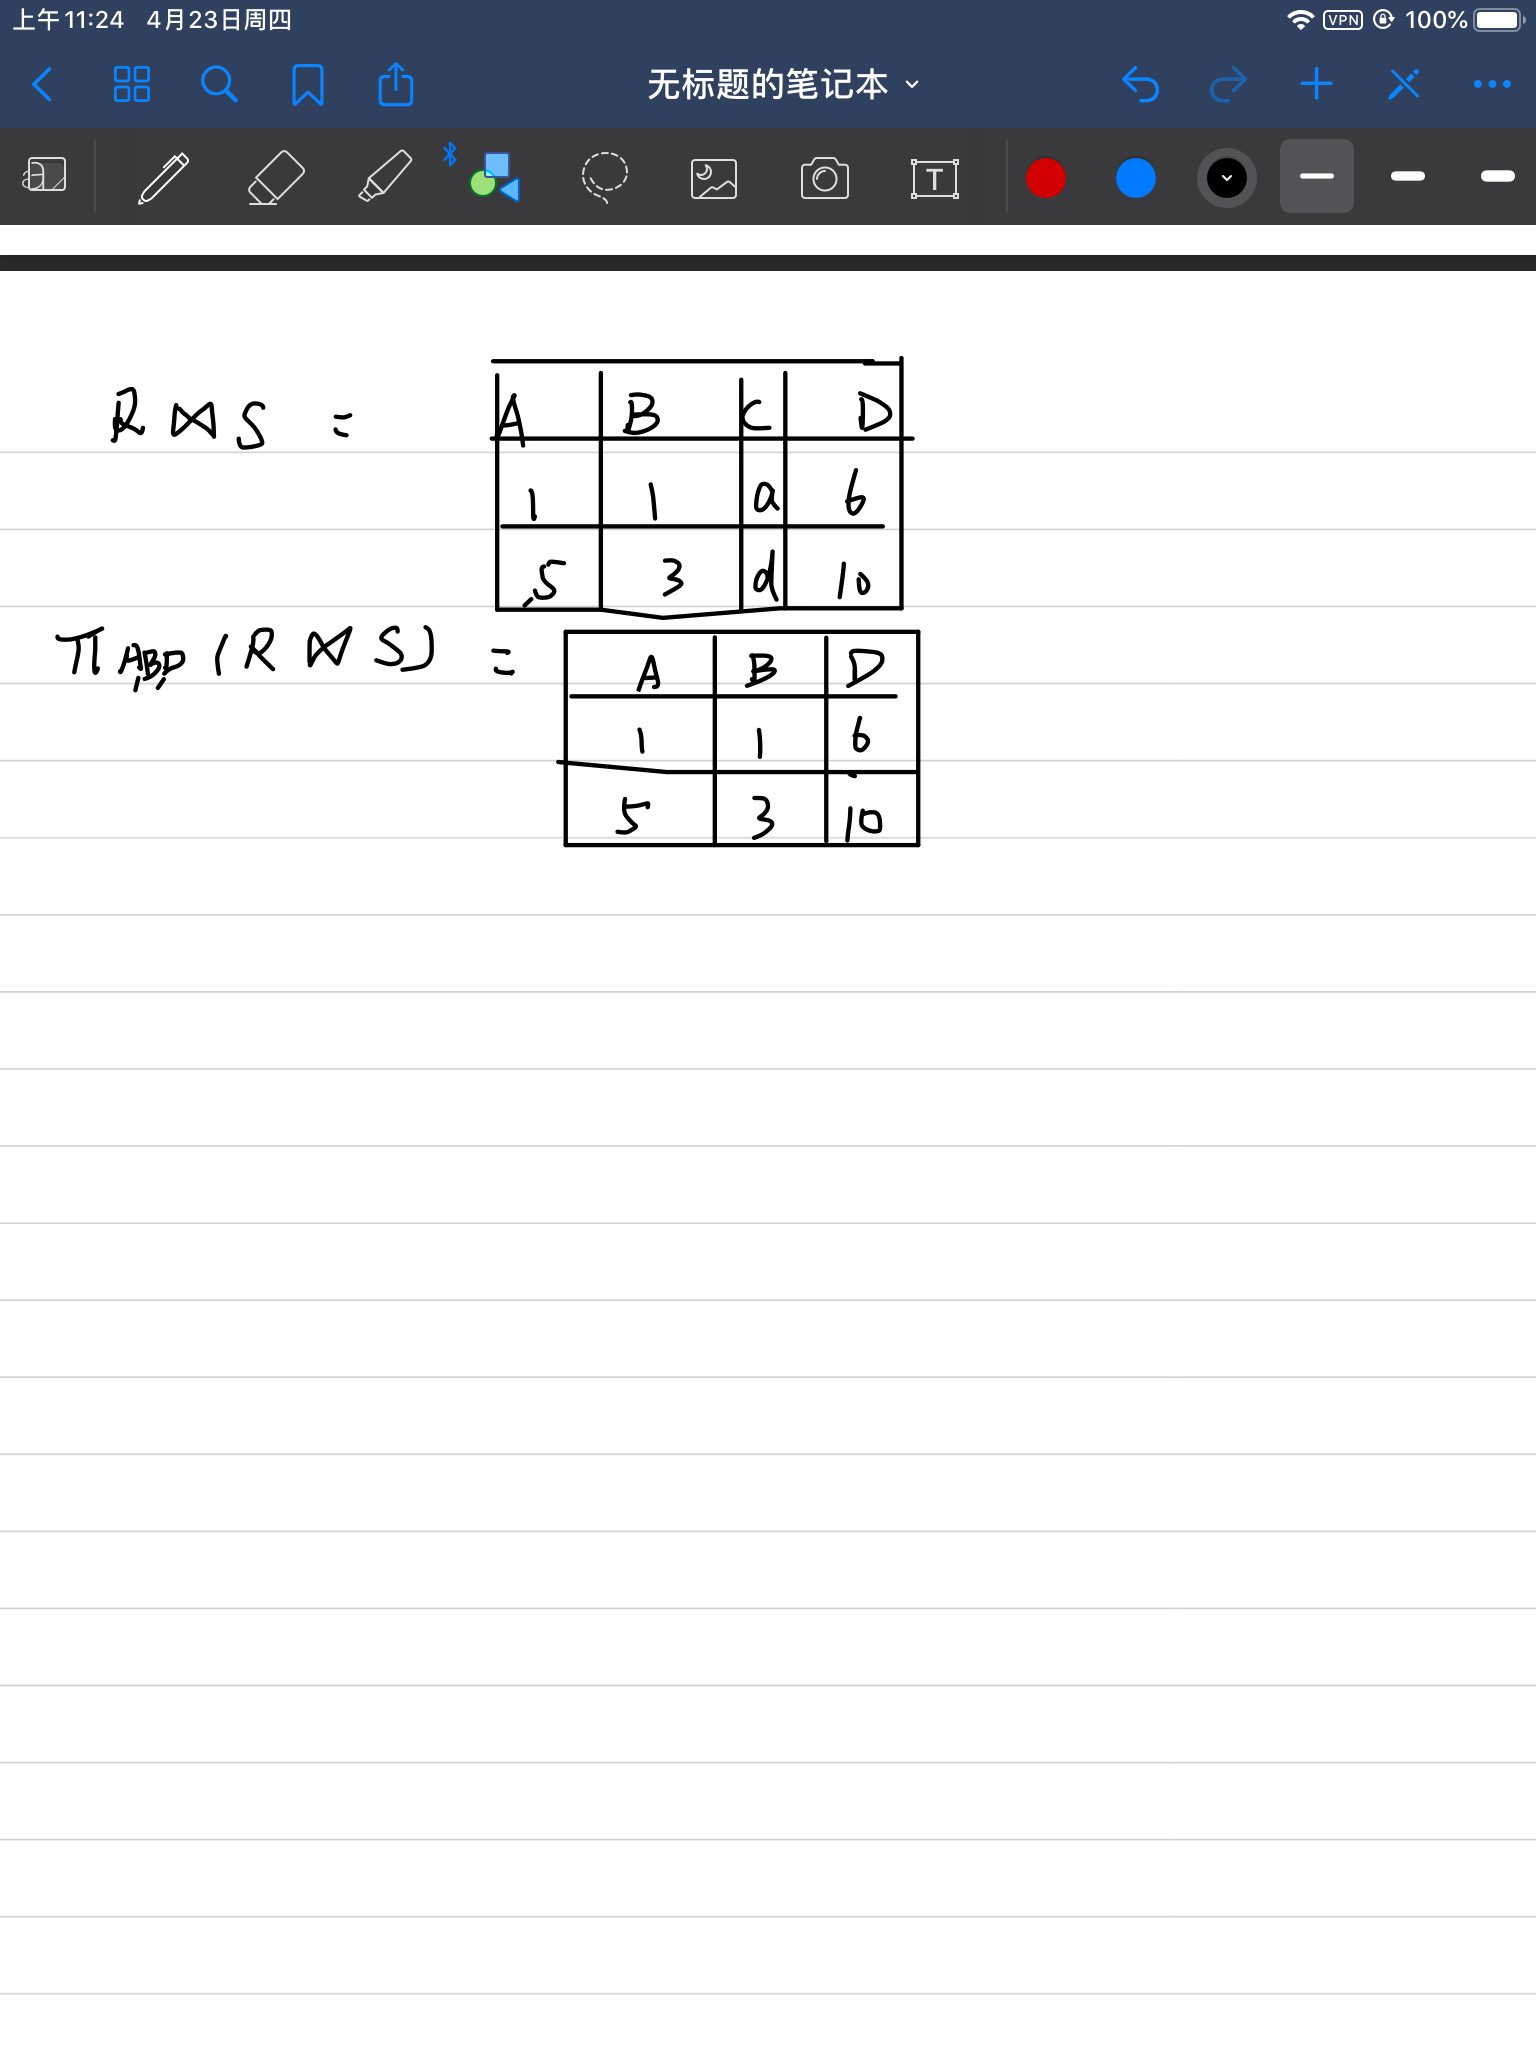 上午11:24 4月23日周四 VPN 100%
无标题的笔记本
T
R ⋈ S =
A B C D
1 1 a 6
5 3 d 10
π A,B,D (R ⋈ S) =
A B D
1 1 6
5 3 10